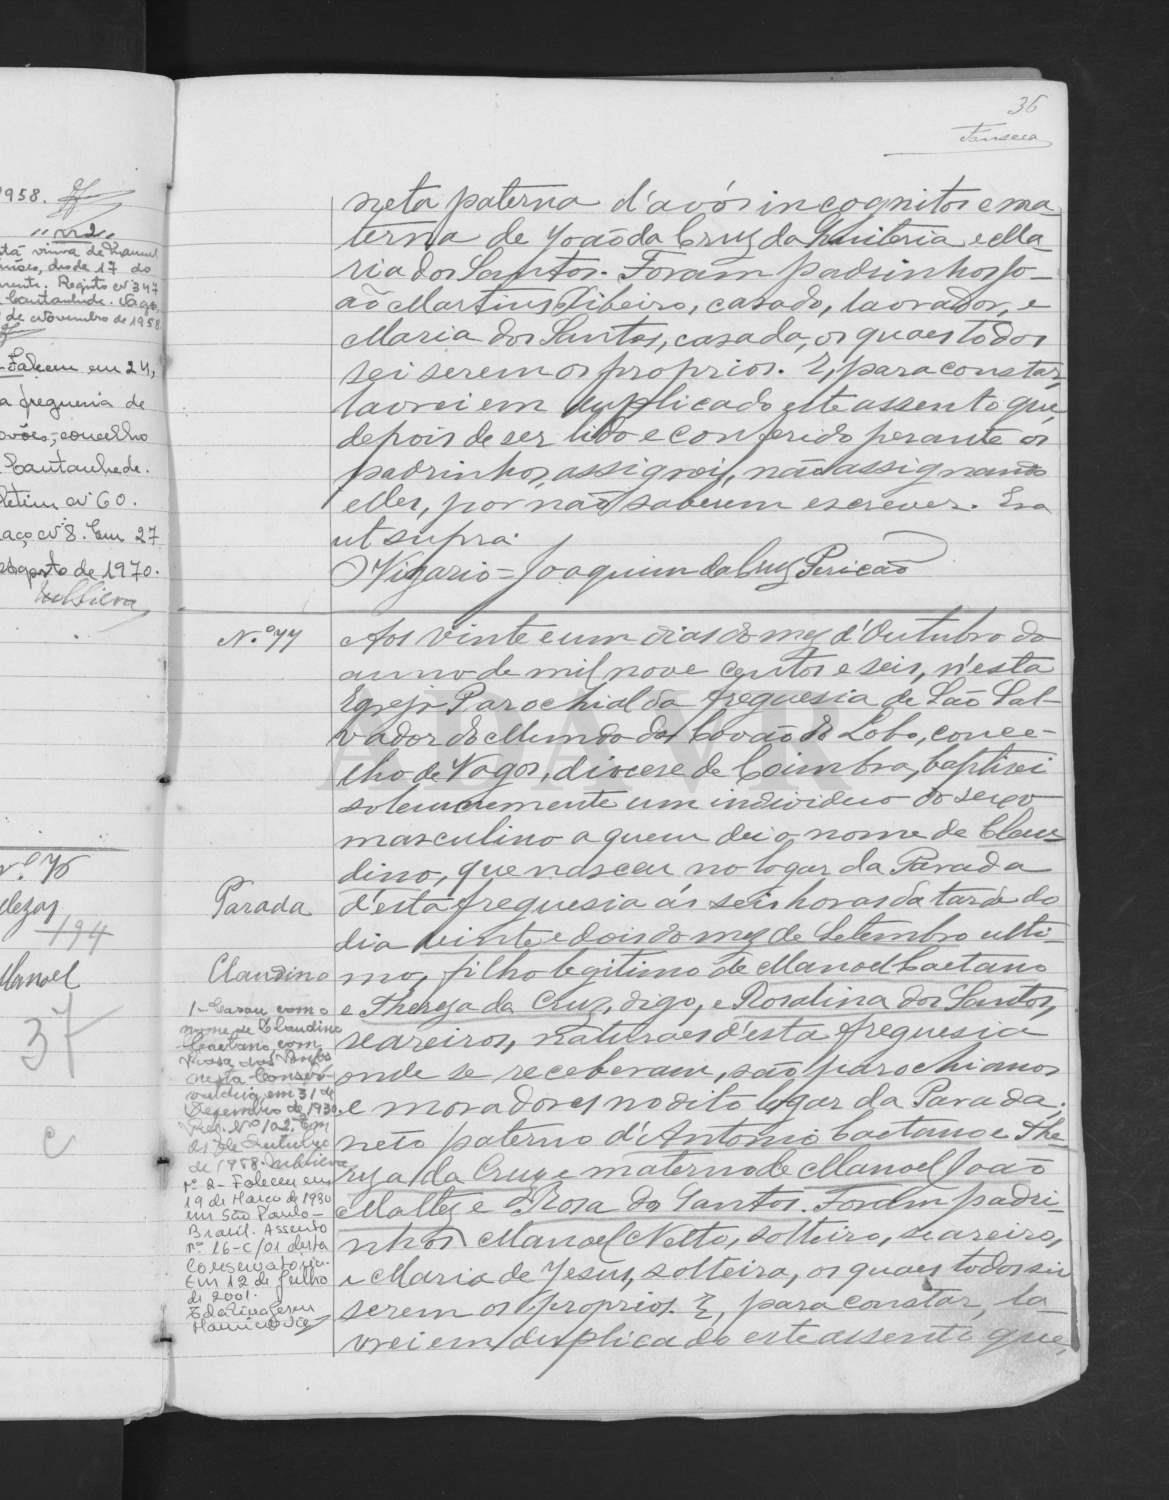 36
Fonseca
1958.
"nº 2"
tá viuva de Manuel
desde 17 do
Registo nº 347
Cantanhede. Vagos,
de Novembro de 1958
Faleceu em 24,
a freguesia de
ovões, concelho
Cantanhede.
letim nº 60.
aço nº 8. Em 27
Agosto de 1970.
nº 76
194
Manoel
37
c
neta paterna d'avós incognitos e ma-
terna de João da Cruz da Quiteria e Ma-
ria dos Santos. Foram padrinhos Jo-
ão Martins Ribeiro, casado, lavrador, e
Maria dos Santos, casada, os quaes todos
sei serem os proprios. E, para constar,
lavrei em duplicado este assento que,
depois de ser lido e conferido perante os
padrinhos, assignei, não assignando
elles, por não saberem escrever. Era
ut supra.
O Vigario = Joaquim da Cruz Pericão
N.º 77
Aos vinte e um dias do mez d'Outubro do
anno de mil nove centos e seis, n'esta
Egreja Parochial da freguesia de São Sal-
vador do Mundo do Covão do Lobo, conce-
lho de Vagos, diocese de Coimbra, baptisei
solemnemente um individuo do sexo
masculino a quem dei o nome de Clau-
dino, que nasceu no logar da Parada
Parada
d'esta freguesia ás seis horas da tarde do
dia vinte e dois do mez de Setembro ulti-
Claudino
mo, filho legitimo de Manoel Caetano
e Thereza da Cruz, digo, e Rosalina dos Santos,
seareiros, naturaes d'esta freguesia
onde se receberam, são parochianos
e moradores no dito logar da Parada;
neto paterno d'Antonio Caetano e The-
reza da Cruz e materno de Manoel João
Maltez e Rosa dos Santos. Foram padri-
nhos Manoel Netto, solteiro, seareiro,
e Maria de Jesus, solteira, os quaes todos sei
serem os proprios. E, para constar, la-
vrei em duplicado este assento que,
1- Casou com o
nome de Claudino
Caetano com
Rosa dos Santos
nesta Conser-
vatória, em 31 de
Dezembro de 1930.
Reg. Nº 102. Em
21 de Outubro
de 1958.
Nº 2- Faleceu em
19 de Março de 1980
em São Paulo -
Brasil. Assento
nº 16-C/01 desta
Conservatoria.
Em 12 de Julho
de 2001.